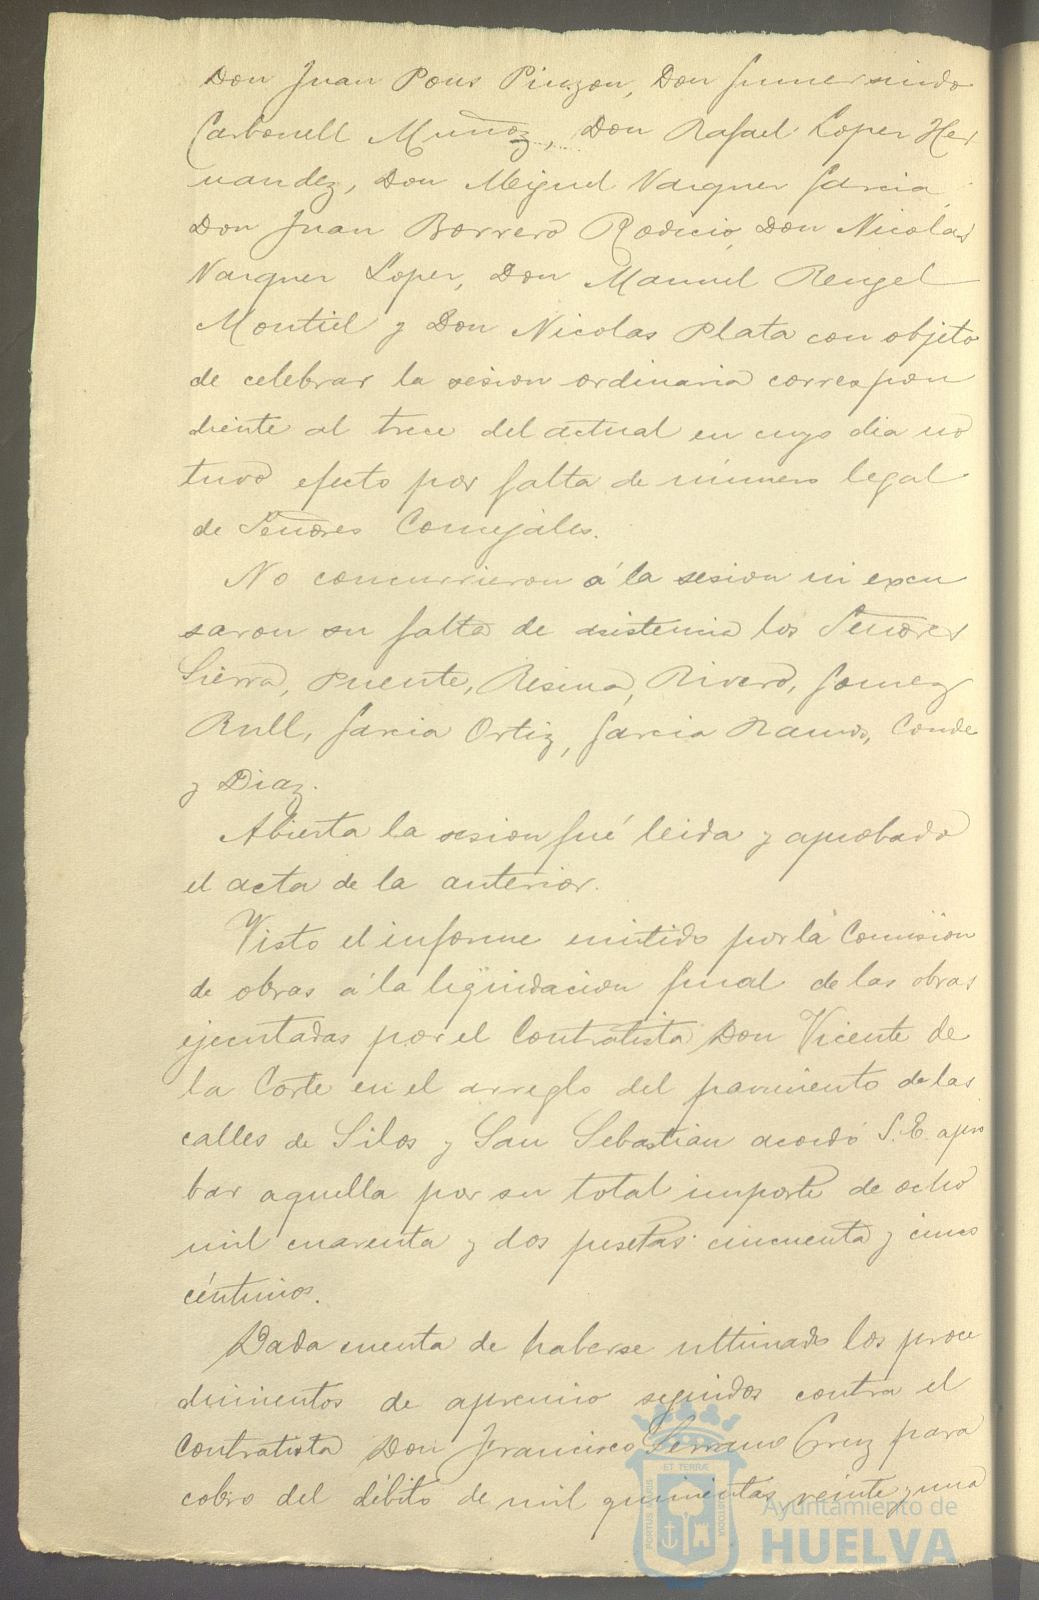 Don Juan Pons Pinzon, Don Gumersindo
Carbonell Muñoz, Don Rafael Lopez Her
nandez, Don Miguel Vazquez Garcia,
Don Juan Borrero Rodicio, Don Nicolas
Vazquez Lopez, Don Manuel Rengel
Montiel y Don Nicolas Plata con objeto
de celebrar la sesion ordinaria correspon
diente al trece del actual en cuyo dia no
tuvo efecto por falta de número legal
de Señores Concejales.
No concurrieron á la sesion ni excu
saron su falta de asistencia los Señores
Sierra, Puente, Resina, Rivero, Gomez
Rull, Garcia Ortiz, Garcia Ramos, Conde
y Diaz.
Abierta la sesion fué leida y aprobada
el acta de la anterior.
Visto el informe emitido por la Comision
de obras á la liquidacion final de las obras
ejecutadas por el Contratista Don Vicente de
la Corte en el arreglo del pavimento de las
calles de Silos y San Sebastian acordó S.E. apro
bar aquella por su total importe de ocho
mil cuarenta y dos pesetas cincuenta y cinco
céntimos.
Dada cuenta de haberse ultimado los proce
dimientos de apremio seguidos contra el
Contratista Don Francisco Serrano Cruz para
cobro del débito de mil quinientas veinte y una
ET TERRÆ
PORTUS MARIS
CUSTODIA
Ayuntamiento de
HUELVA